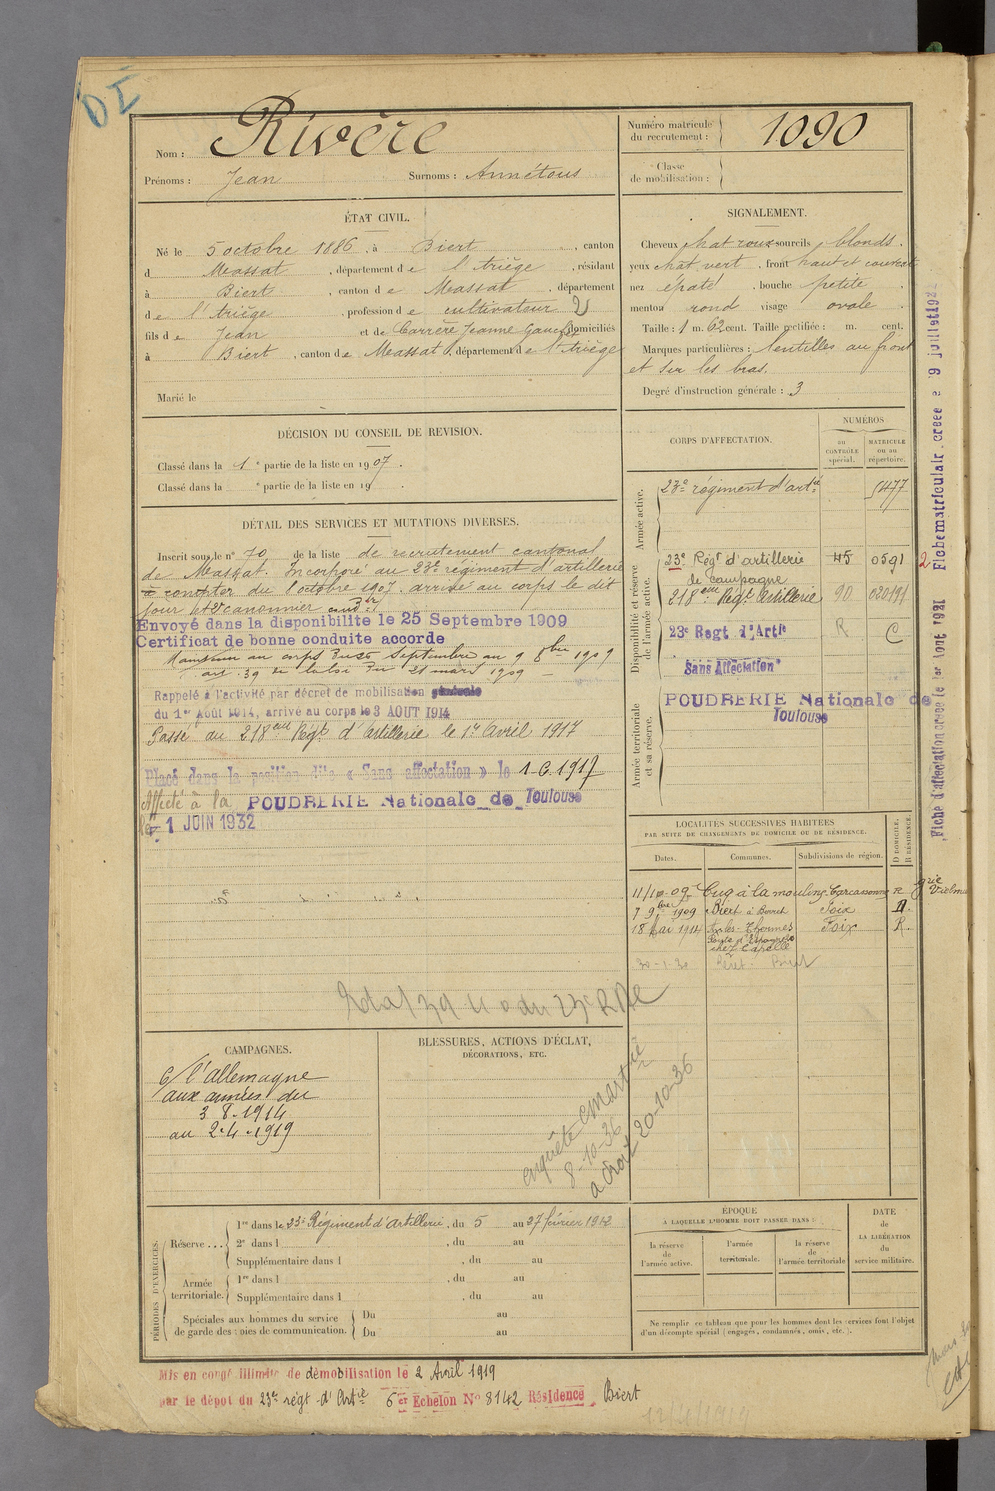 D I
Nom : Rivère
Prénoms : Jean Surnoms : Annétous
Numéro matricule du recrutement : 1090
Classe de mobilisation :
ÉTAT CIVIL.
Né le 5 octobre 1886, à Biert, canton
d Massat, département de l'Ariège, résidant
à Biert, canton de Massat, département
de l'Ariège, profession de cultivateur
fils de Jean et de Carrère Jeanne domiciliés
à Biert, canton de Massat, département de l'Ariège
Marié le
SIGNALEMENT.
Cheveux chat roux sourcils blonds.
yeux chat vert, front haut et couvert
nez épaté, bouche petite.
menton rond visage ovale.
Taille : 1 m. 62 cent. Taille rectifiée : m. cent.
Marques particulières : lentilles au front
et sur les bras.
Degré d'instruction générale : 3
DÉCISION DU CONSEIL DE REVISION.
Classé dans la 1e partie de la liste en 1907.
Classé dans la e partie de la liste en 19
DÉTAIL DES SERVICES ET MUTATIONS DIVERSES.
Inscrit sous le n° 70 de la liste de recrutement cantonal
de Massat. Incorporé au 23e régiment d'artillerie
à compter du 8 octobre 1907. arrivé au corps le dit
jour et 2e canonnier cond.r
Envoyé dans la disponibilite le 25 Septembre 1909
Certificat de bonne conduite accorde
Maintenu au corps du 25 Septembre au 9 8bre 1909
art. 39 de la loi du 21 mars 1909
Rappelé à l'activité par décret de mobilisation générale
du 1er Août 1914, arrivé au corps le 3 AOUT 1914
Passé au 218eme Régt d'Artillerie le 1er Avril 1917
Placé dans la position dite « Sans affectation » le 1.6.1917
Affecté à la POUDRERIE Nationale de Toulouse
le 1 JUIN 1932
CORPS D'AFFECTATION.
NUMÉROS
AU CONTRÔLE spécial.
MATRICULE ou au répertoire.
Armée active.
23e régiment d'artie 5477
Disponibilité et réserve de l'armée active.
23e Régt d'artillerie de campagne 45 0591
218eme Régt Artillerie 90 020191
23e Regt d'Artie R C
Sans Affectation
Armée territoriale et sa réserve.
POUDRERIE Nationale de
Toulouse
Fiche d'affectation creee le 1er Aout 1931 Fiche matriculair. creee e 9 juillet 193
LOCALITÉS SUCCESSIVES HABITÉES
PAR SUITE DE CHANGEMENTS DE DOMICILE OU DE RÉSIDENCE.
Dates. Communes. Subdivisions de région. D DOMICILE. R RÉSIDENCE.
11/10-09 Cug à la mouline Carcassonne R
7 9bre 1909 Biert à Foix D.
18 Mai 1914 Ax-les-Thermes Foix R.
30-1-30 Biert
CAMPAGNES.
C/ l'allemagne
aux armées du
3.8.1914
au 2.4.1919
BLESSURES, ACTIONS D'ÉCLAT,
DÉCORATIONS, ETC.
enquête
8-10-36
20-10-36
PÉRIODES D'EXERCICES.
Réserve ... 1re dans le 23e Régiment d'Artillerie, du 5 au 27 février 1912
2e dans l , du au
Supplémentaire dans l , du au
Armée territoriale. 1re dans l , du au
Supplémentaire dans l , du au
Spéciales aux hommes du service de garde des voies de communication. Du au
Du au
ÉPOQUE
A LAQUELLE L'HOMME DOIT PASSER DANS :
la réserve de l'armée active.
l'armée territoriale.
la réserve de l'armée territoriale
DATE de LA LIBÉRATION du service militaire.
Ne remplir ce tableau que pour les hommes dont les services font l'objet
d'un décompte spécial (engagés, condamnés, omis, etc.).
Mis en congé illimité de démobilisation le 2 Avril 1919
par le dépot du 23e régt d'Artie 6er Echelon No 8142 Résidence Biert